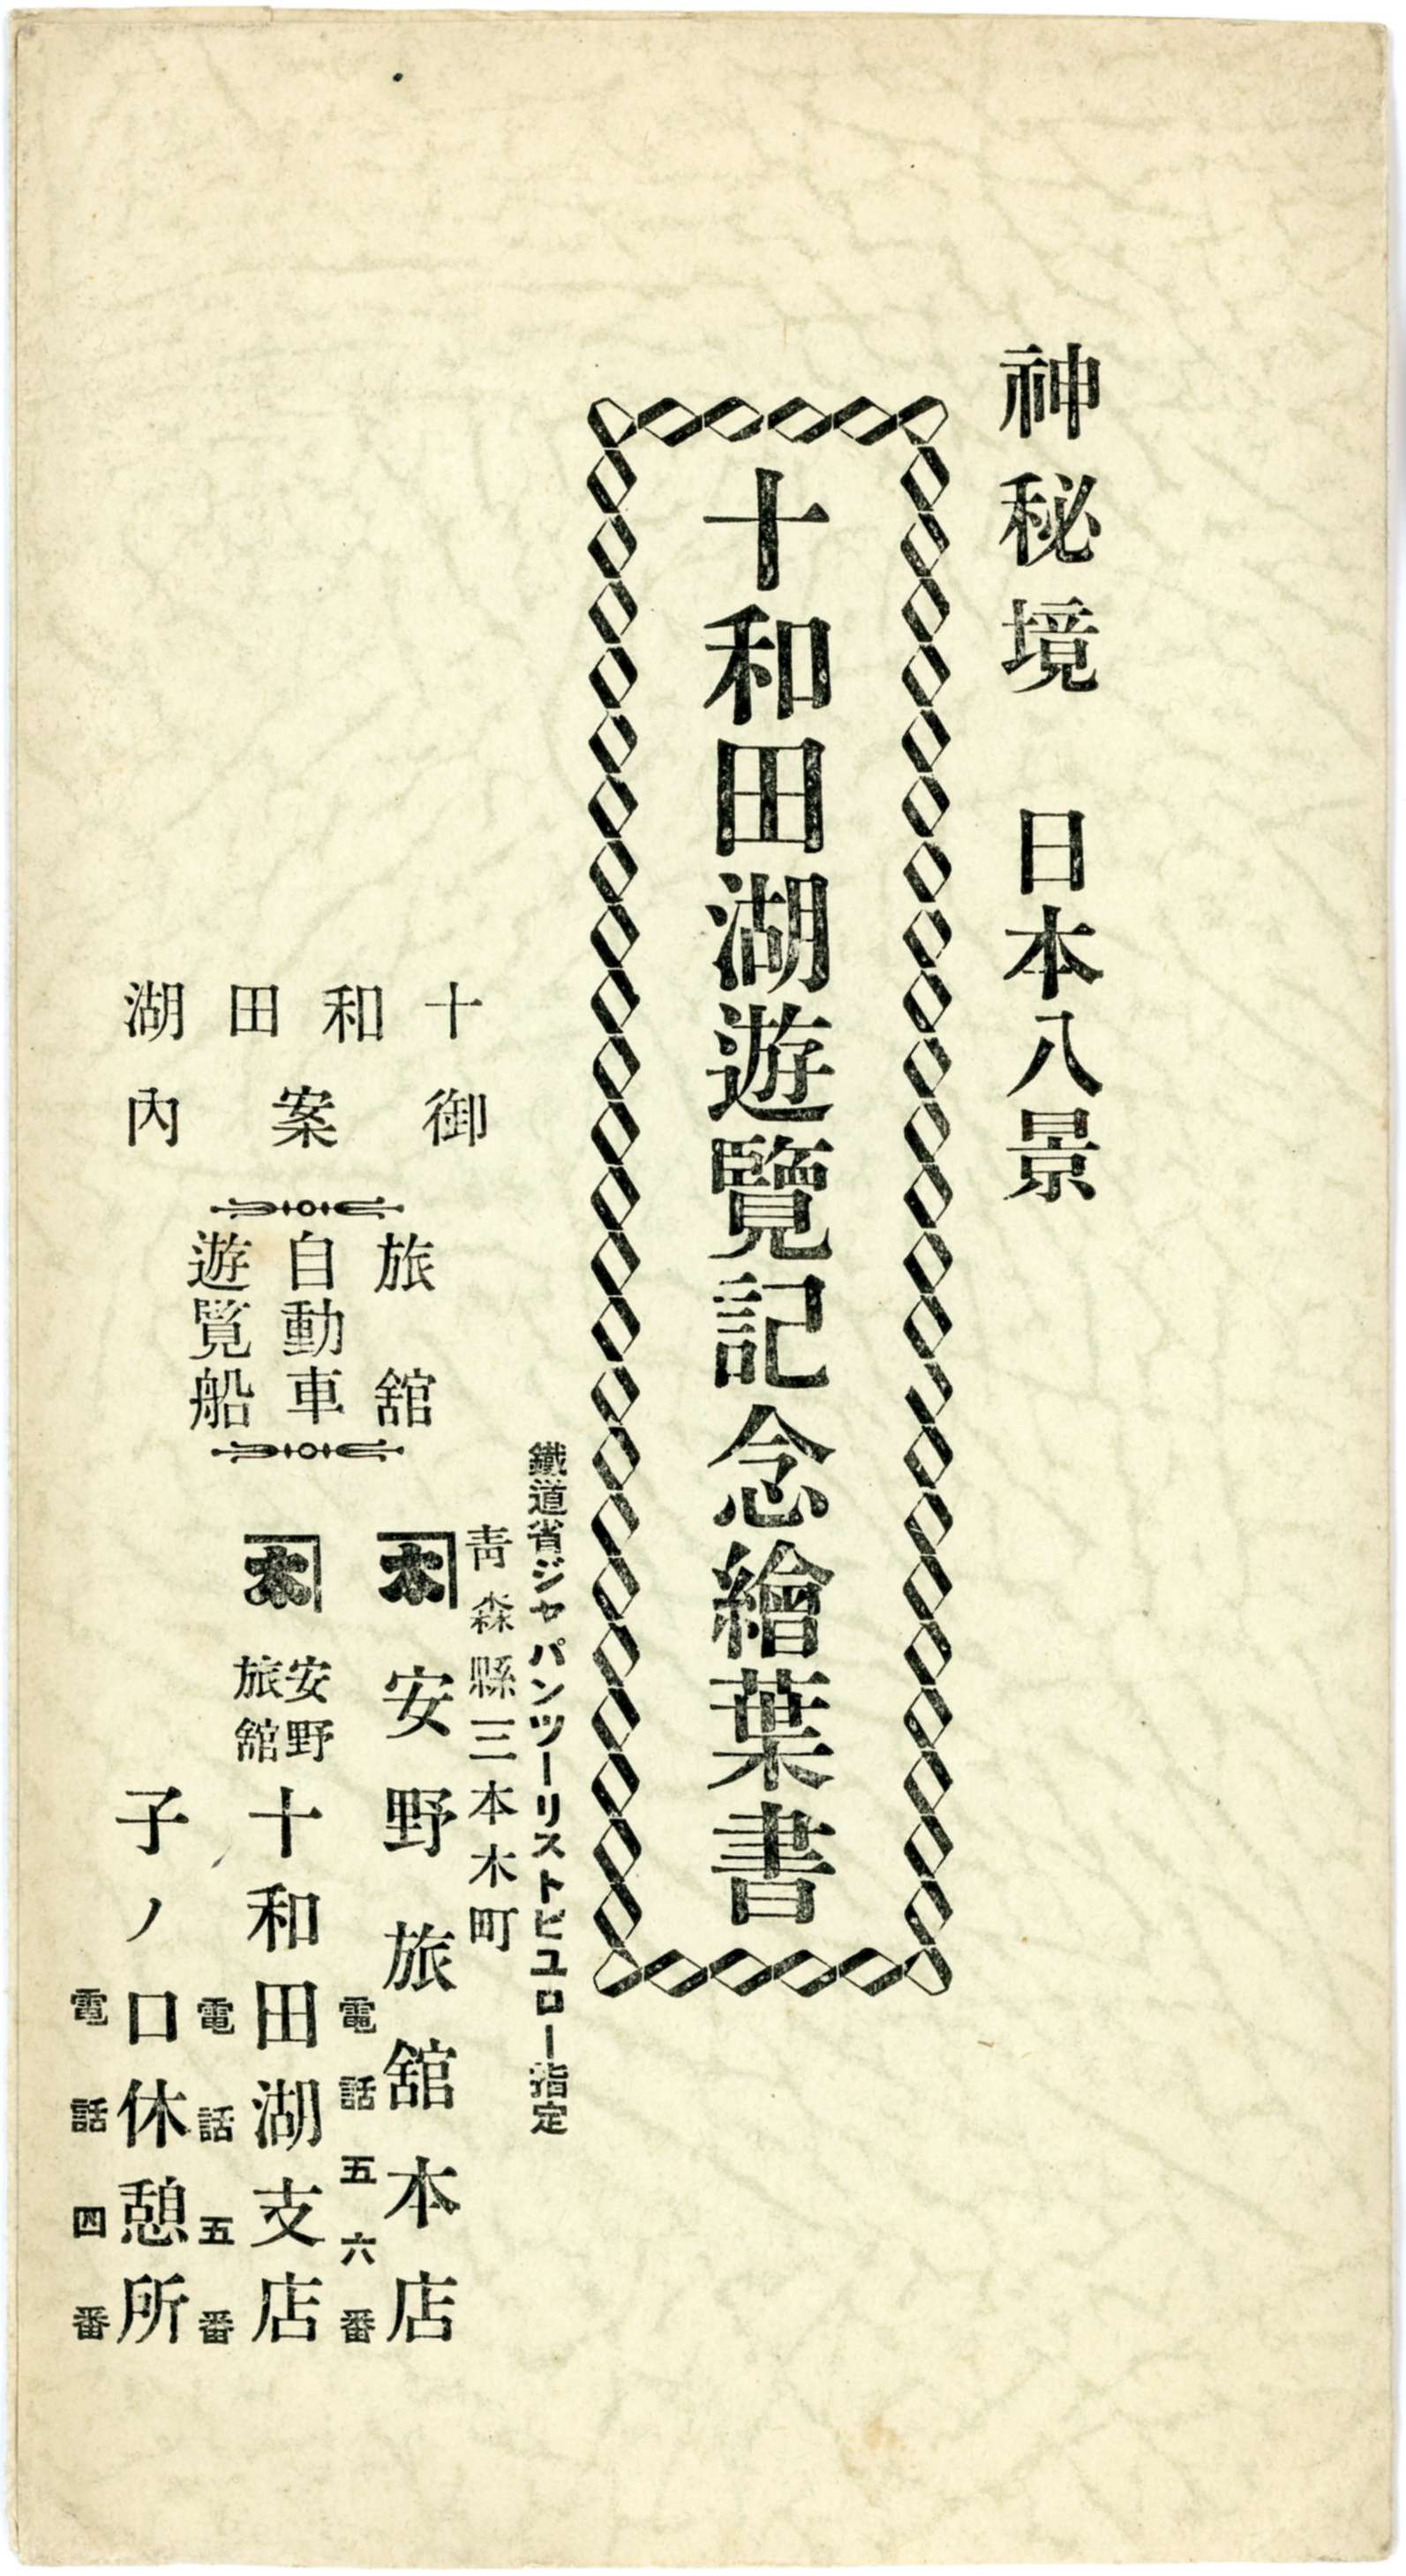 神秘境　日本八景
十和田湖遊覽記念繪葉書
鐵道省ジャパンツーリストビユロー指定
靑森縣三本木町
十和田湖
御案內
旅舘
自動車
遊覽船
木
安野旅舘本店
電話五六番
木
安野
旅舘
十和田湖支店
電話五番
子ノ口休憩所
電話四番